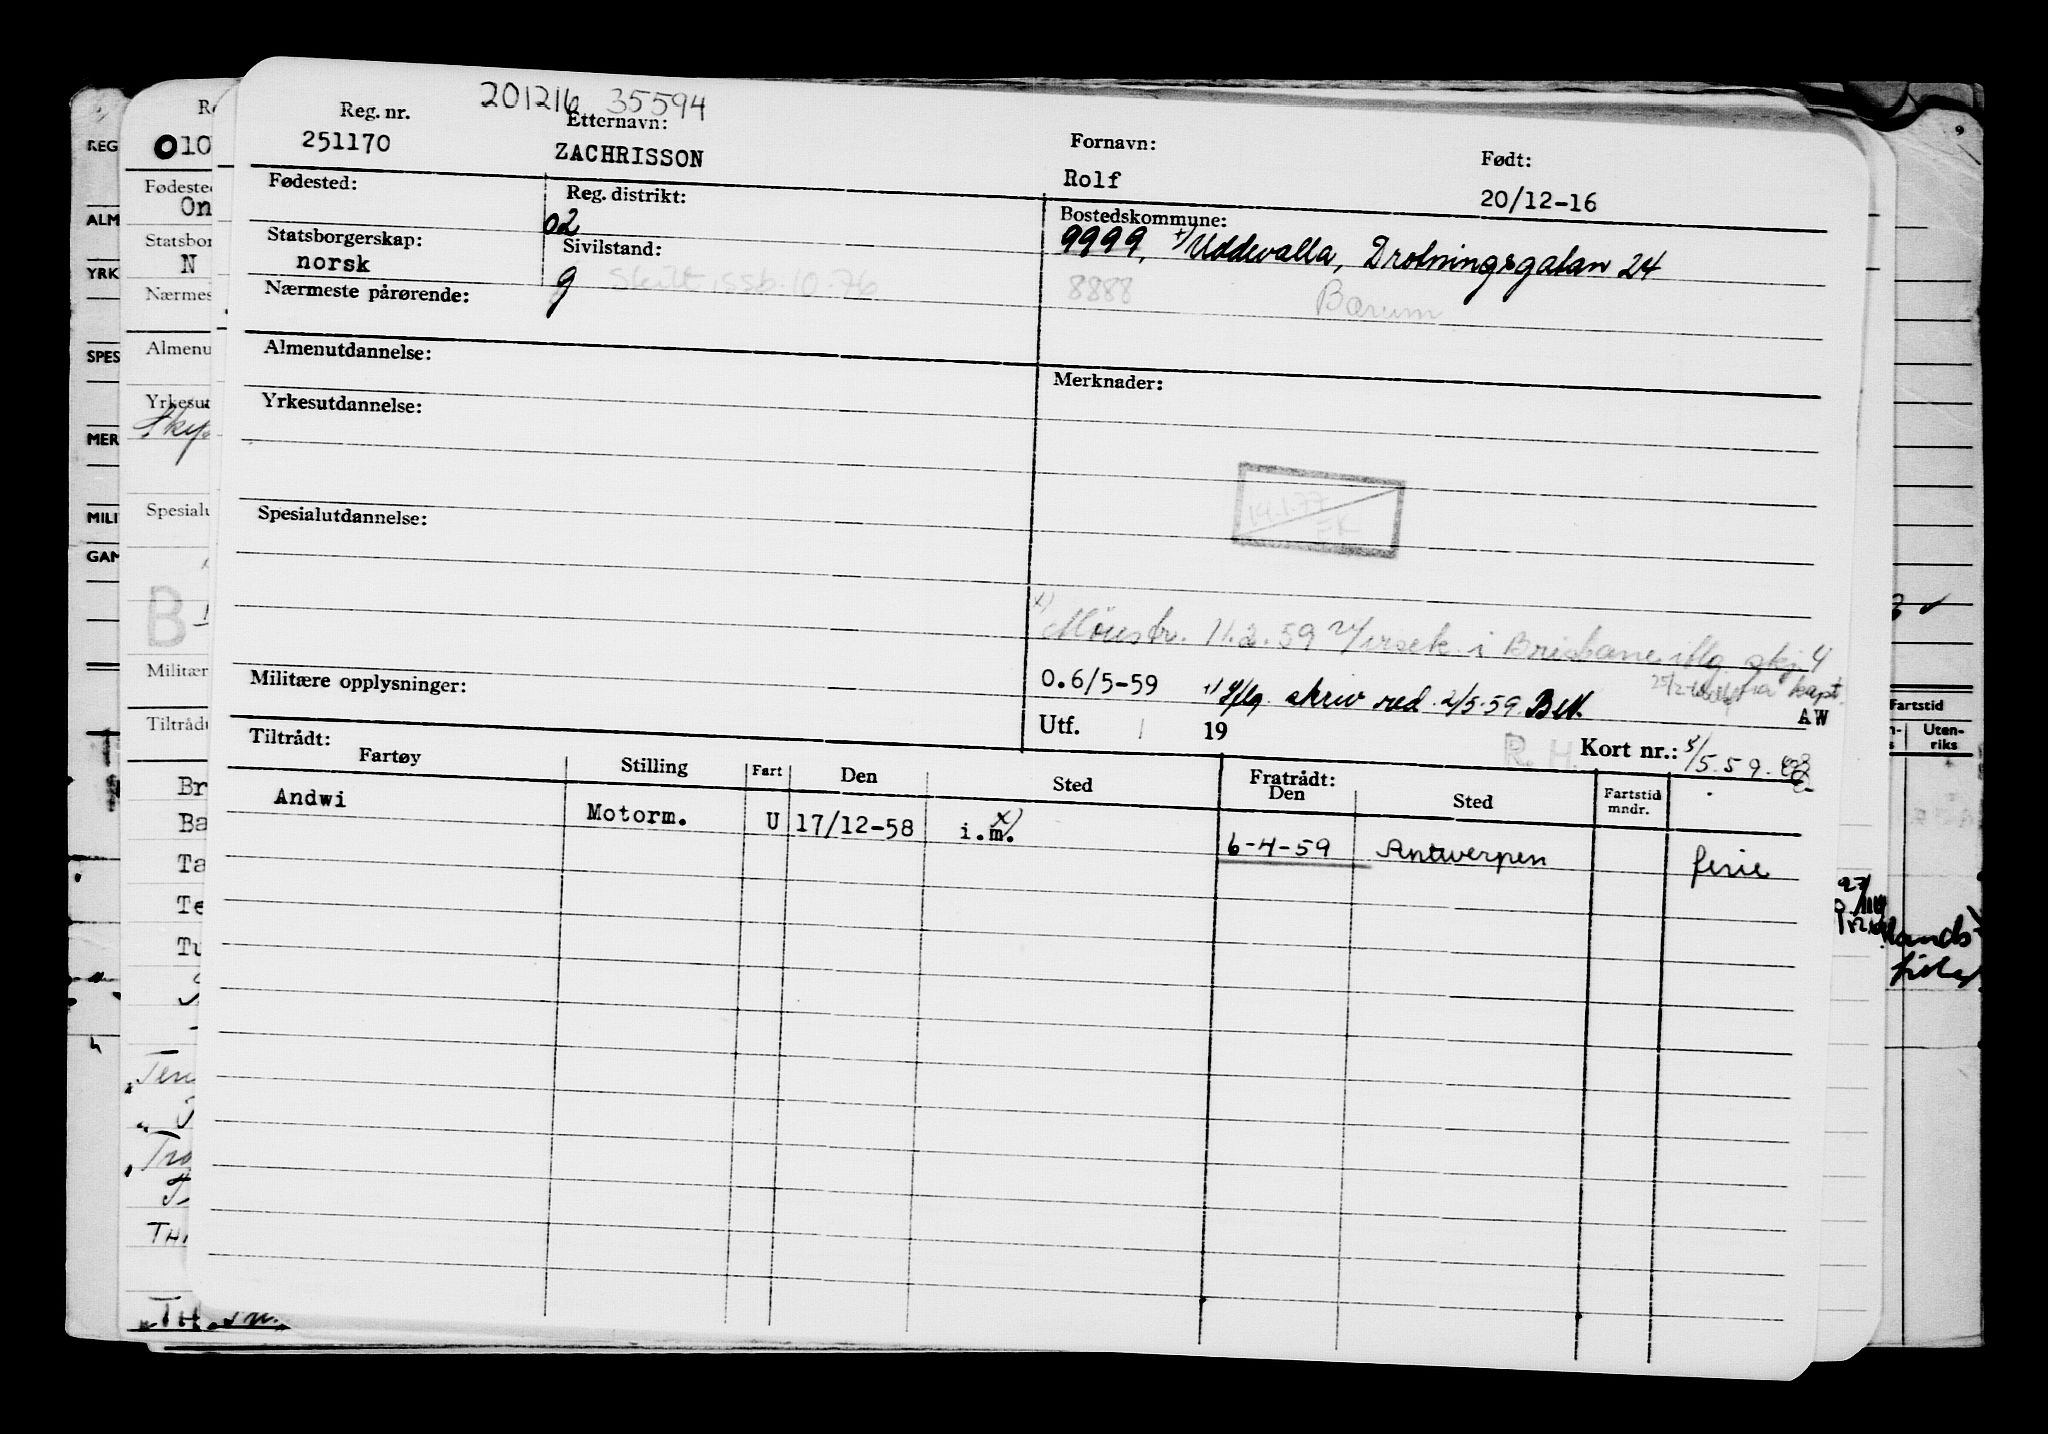 201216 35594
Reg. nr. Etternavn: Fornavn: Født:
251170 ZACHRISSON Rolf 20/12-16
Fødested: Reg. distrikt: Bostedskommune:
02 9999, +) Uddevalla, Drotningsgatan 24
Statsborgerskap: Sivilstand:
norsk g Skilt, ssb. 10-76 8888 Bærum
Nærmeste pårørende:
Almenutdannelse: Merknader:
Yrkesutdannelse:
14.1.77
EK
Spesialutdannelse:
x) Mønstr. 11.2.59 i Brisbane iflg skj. 4
fra kapt.
Militære opplysninger: O.6/5-59 +) Iflg. skriv red. 2/5.59. AW
Utf. 19 R. H. Kort nr.: 5/5.59.
Tiltrådt: Fratrådt:
Fartøy Stilling Fart Den Sted Den Sted Fartstid mndr.
Andwi Motorm. U 17/12-58 i.m. x) 6-4-59 Antwerpen ferie
REG
ALM
YRK
SPES
MER
MILI
GAM
O10
Fødested
On
Statsbor
N
Nærmes
Almenu
Yrkesut
Spesialu
B
Militær
Tiltrådt
Br
Ba
Ta
Te
Tu
Fartstid
Uten-
riks